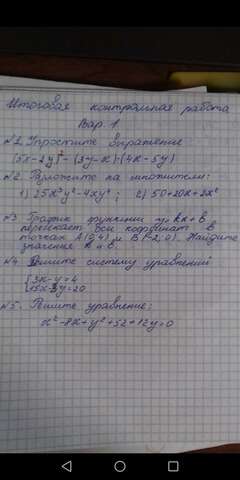 Итоговая контрольная работа
Вар. 1
№1 Упростите выражение
(5x-2y)²-(3y-x)·(4x-5y)
№2. Разложите на множители:
1) 25x³y²-4xy⁴; 2) 50+20x+2x²
№3 График функции y=kx+b
пересекает оси координат в
точках A(0;4) и B(-2;0). Найдите
значение k и b.
№4 Решите систему уравнений
{3x-y=4
15x-3y=20
№5. Решите уравнение:
x²-8x+y²+52+12y=0